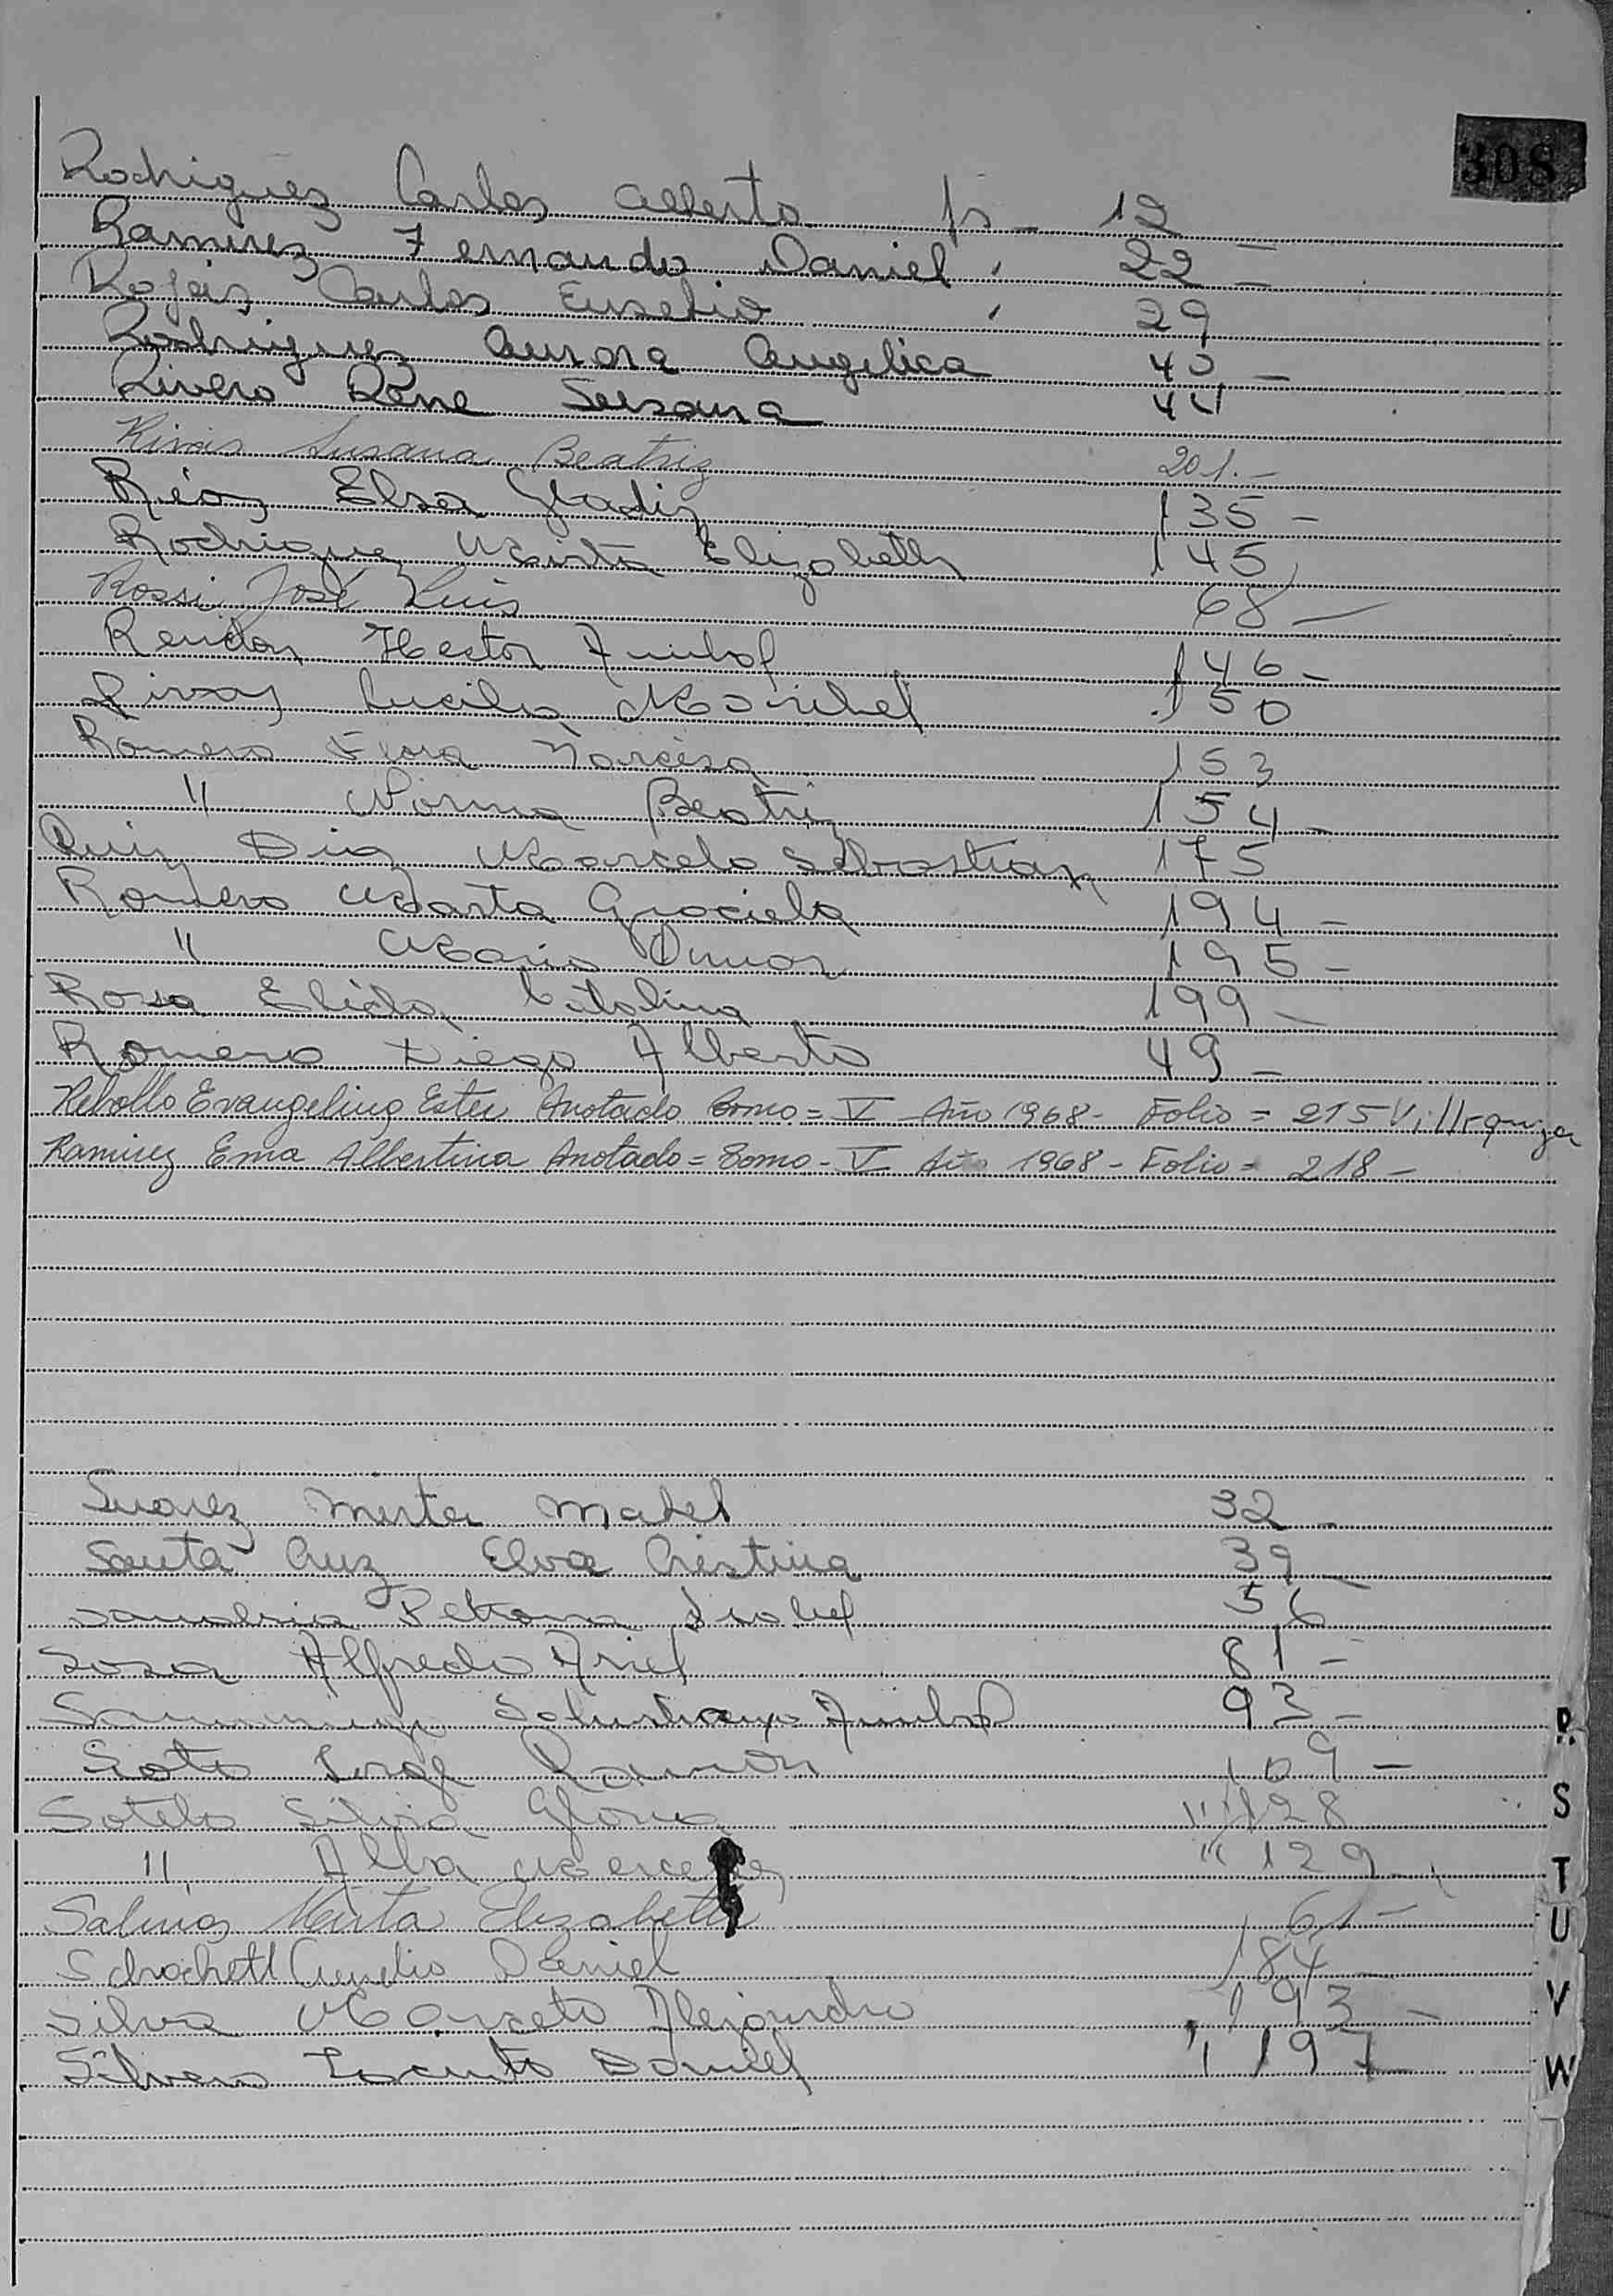 308
Rodriguez Carlos Alberto fs - 12
Ramirez Fernando Daniel " 22 -
Rojas Carlos Eusebio " 29
Rodriguez Aurora Angelica 40 -
Rivero Rene Susana 44
Rivas Susana Beatriz 201. -
Rios Elsa Gladiz 135 -
Rodriguez Mirta Elizabeth 145
Rossi José Luis 68 -
Hector Anibal 146 -
Rivas Lucila Maribel 150
Romero Flora Narcisa 153
" Norma Beatriz 154 -
Ruiz Diaz Marcelo Sebastian 175
Romero Marta Graciela 194 -
" Mario Omar 195 -
Rosa Elida Catalina 199 -
Romero Diego Alberto 49 -
Rebollo Evangelina Ester Anotado Tomo = V Año 1968 - Folio = 215 V. Urquiza
Ramirez Ema Albertina Anotado = Tomo - V Año 1968 - Folio = 218 -
Suarez Mirta Mabel 32 -
Santa Cruz Elva Cristina 39 -
Sanabria Petrona Isabel 56
Sosa Alfredo Ariel 81 -
Anibal 93 -
Soto Jorge Ramon 109 -
Sotelo Silvia Gloria " 128
" Alba Mercedes " 129 -
Salinas Mirta Elizabeth 61 -
Aurelio Daniel 184 -
Silva Marcelo Alejandro 193 -
Silvero Jacinto Daniel " 197
R
S
T
U
V
W